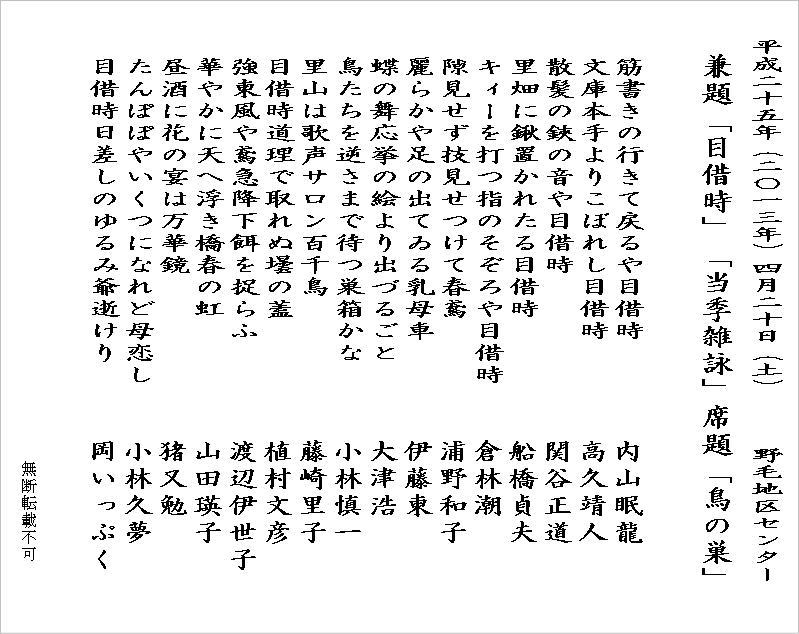 平成二十五年(二〇一三年)四月二十日(土) 野毛地区センター
兼題「目借時」「当季雑詠」席題「鳥の巣」
筋書きの行きて戻るや目借時 内山眠龍
文庫本手よりこぼれし目借時 高久靖人
散髪の鋏の音や目借時 関谷正道
里畑に鍬置かれたる目借時 船橋貞夫
キィーを打つ指のそぞろや目借時 倉林潮
隙見せず技見せつけて春鳶 浦野和子
麗らかや足の出てゐる乳母車 伊藤東
蝶の舞応挙の絵より出づるごと 大津浩
鳥たちを逆さまで待つ巣箱かな 小林慎一
里山は歌声サロン百千鳥 藤崎里子
目借時道理で取れぬ壜の蓋 植村文彦
強東風や鳶急降下餌を捉らふ 渡辺伊世子
華やかに天へ浮き橋春の虹 山田瑛子
昼酒に花の宴は万華鏡 猪又勉
たんぽぽやいくつになれど母恋し 小林久夢
目借時日差しのゆるみ爺逝けり 岡いっぷく
無断転載不可